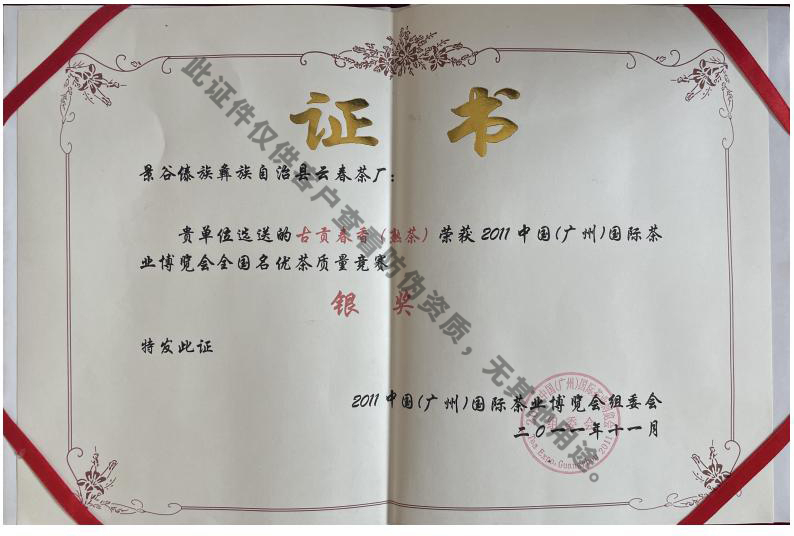 证书
景谷傣族彝族自治县云春茶厂：
贵单位选送的古贡春香（熟茶）荣获2011中国（广州）国际茶
业博览会全国名优茶质量竞赛
银奖
特发此证
2011中国（广州）国际茶业博览会组委会
二0一一年十一月
此证件仅供客户查看防伪资质，无其他用途。